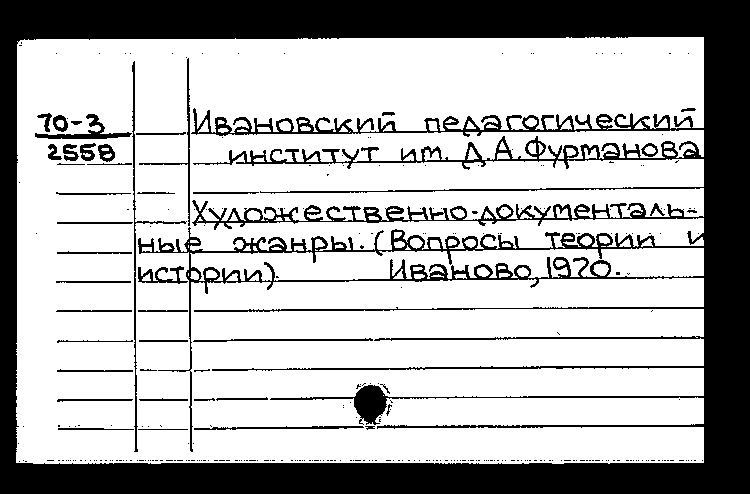 70-3
2558
Ивановский педагогический
институт им. Д.А.Фурманова
Художественно-документаль-
ные жанры. (Вопросы теории и
истории) Иваново, 1970.